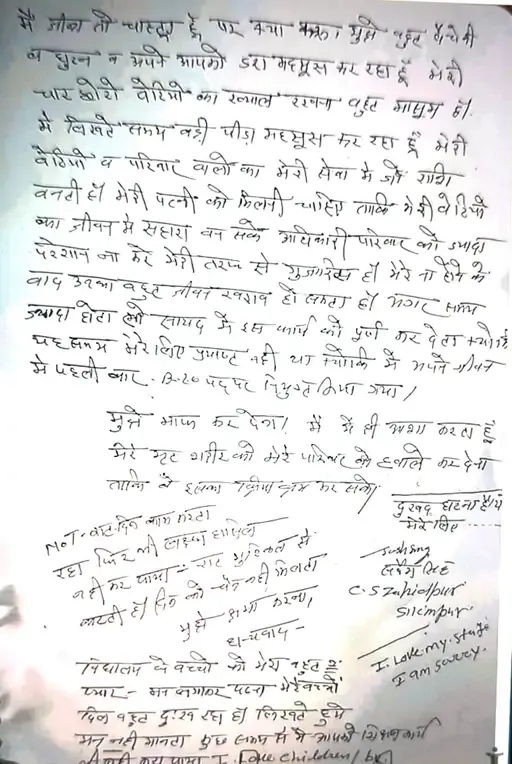 मैं जीना तो चाहता हूँ, पर क्या करूं। मुझे बहुत बैचेनी
व घुटन व अपने आपको डरा महसूस कर रहा हूँ मेरी
चार छोटी बेटियो का ख्याल रखना बहुत मासूम हैं।
मैं लिखते समय बड़ी पीड़ा महसूस कर रहा हूँ मेरी
बेटियो व परिवार वालों का मेरी सेवा में जो राशि
बनती हो मेरी पत्नी को मिलनी चाहिए ताकि मेरी बेटियो
का जीवन में सहारा बन सके अधिकारी परिवार को ज्यादा
परेशान ना करे मेरी तरफ से गुजारिस हैं। मेरे ना होने के
बाद उनका बहुत जीवन खराब हो सकता हैं। अगर समय
ज्यादा होता तो सायद मैं इस कार्य को पूर्ण कर देता क्योंकि
यह समय मेरे लिए प्रयाप्त नही था क्योकि मैं अपने जीवन
में पहली बार B.L.O पद पर नियुक्त किया गया।
मुझे माफ कर देना। मैं ये ही आशा करता हूँ
मेरे मृत शरीर को मेरे परिवार के हवाले कर देना
ताकि वे इसका क्रिया कर्म कर सके।
दुःखद घटना हैं ये
मेरे लिए
NOT- रात-दिन काम करता
रहा फिर भी लक्ष्य हासिल
नही कर पाया- रात मुश्किल से
कटती हैं। दिन को चैन नही मिलता
मुझे क्षमा करना,
धन्यवाद -
सिंह
C.S Zahidpur
I. Love.my.
I am sorry.
विद्यालय के बच्चो को मेरा बहुत २
प्यार- मन लगाकर पढना मेरे बच्चों
दिल बहुत दुःख रहा हैं। लिखते हुये
मन नही मानता कुछ समय से मैं आपको शिक्षण कार्य
नही करा पाया I. Love children/